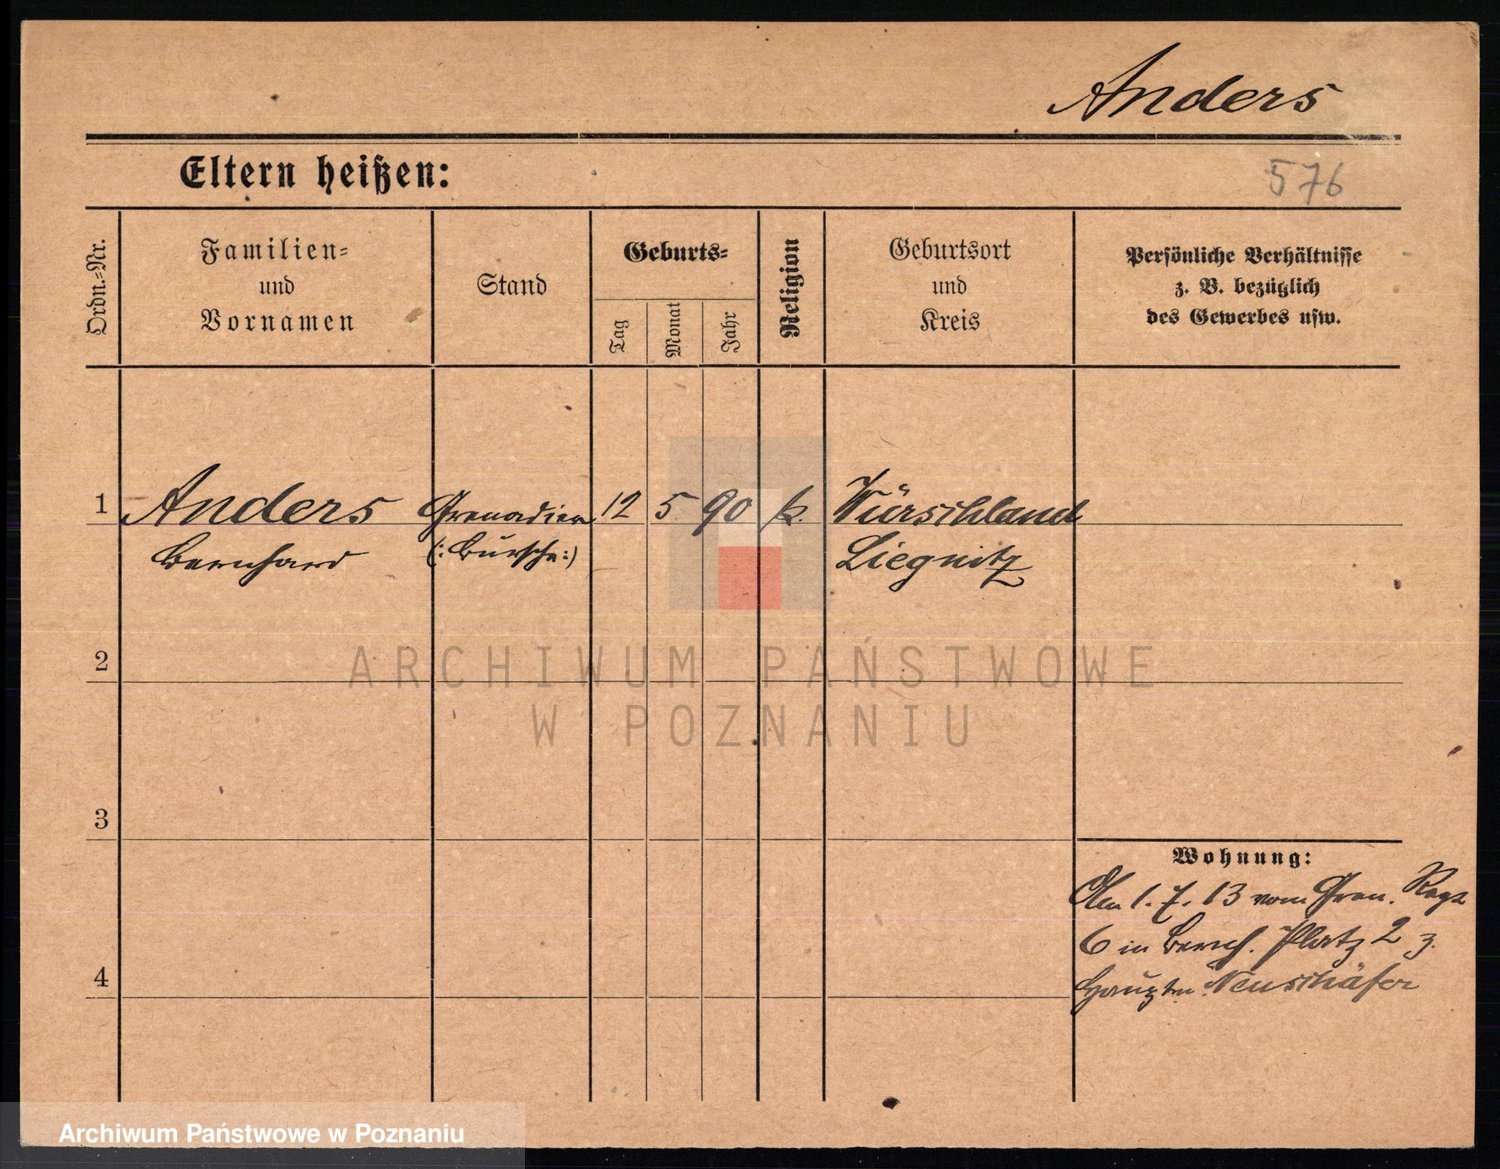 Anders
Eltern heißen:
576
Ordn.-Nr.
Familien-
und
Vornamen
Stand
Geburts-
Tag
Monat
Jahr
Religion
Geburtsort
und
Kreis
Persönliche Verhältnisse
z. B. bezüglich
des Gewerbes usw.
1
Anders
Bernhard
Grenadier
(: Bursche :)
12
5
90
k.
Würschland
Liegnitz
2
3
4
Wohnung:
Am 1. 7. 13 vom Gren. Regt
6 in Bernh. Platz 2 z.
Hauptm Neuschäfer
ARCHIWUM PAŃSTWOWE
W POZNANIU
Archiwum Państwowe w Poznaniu